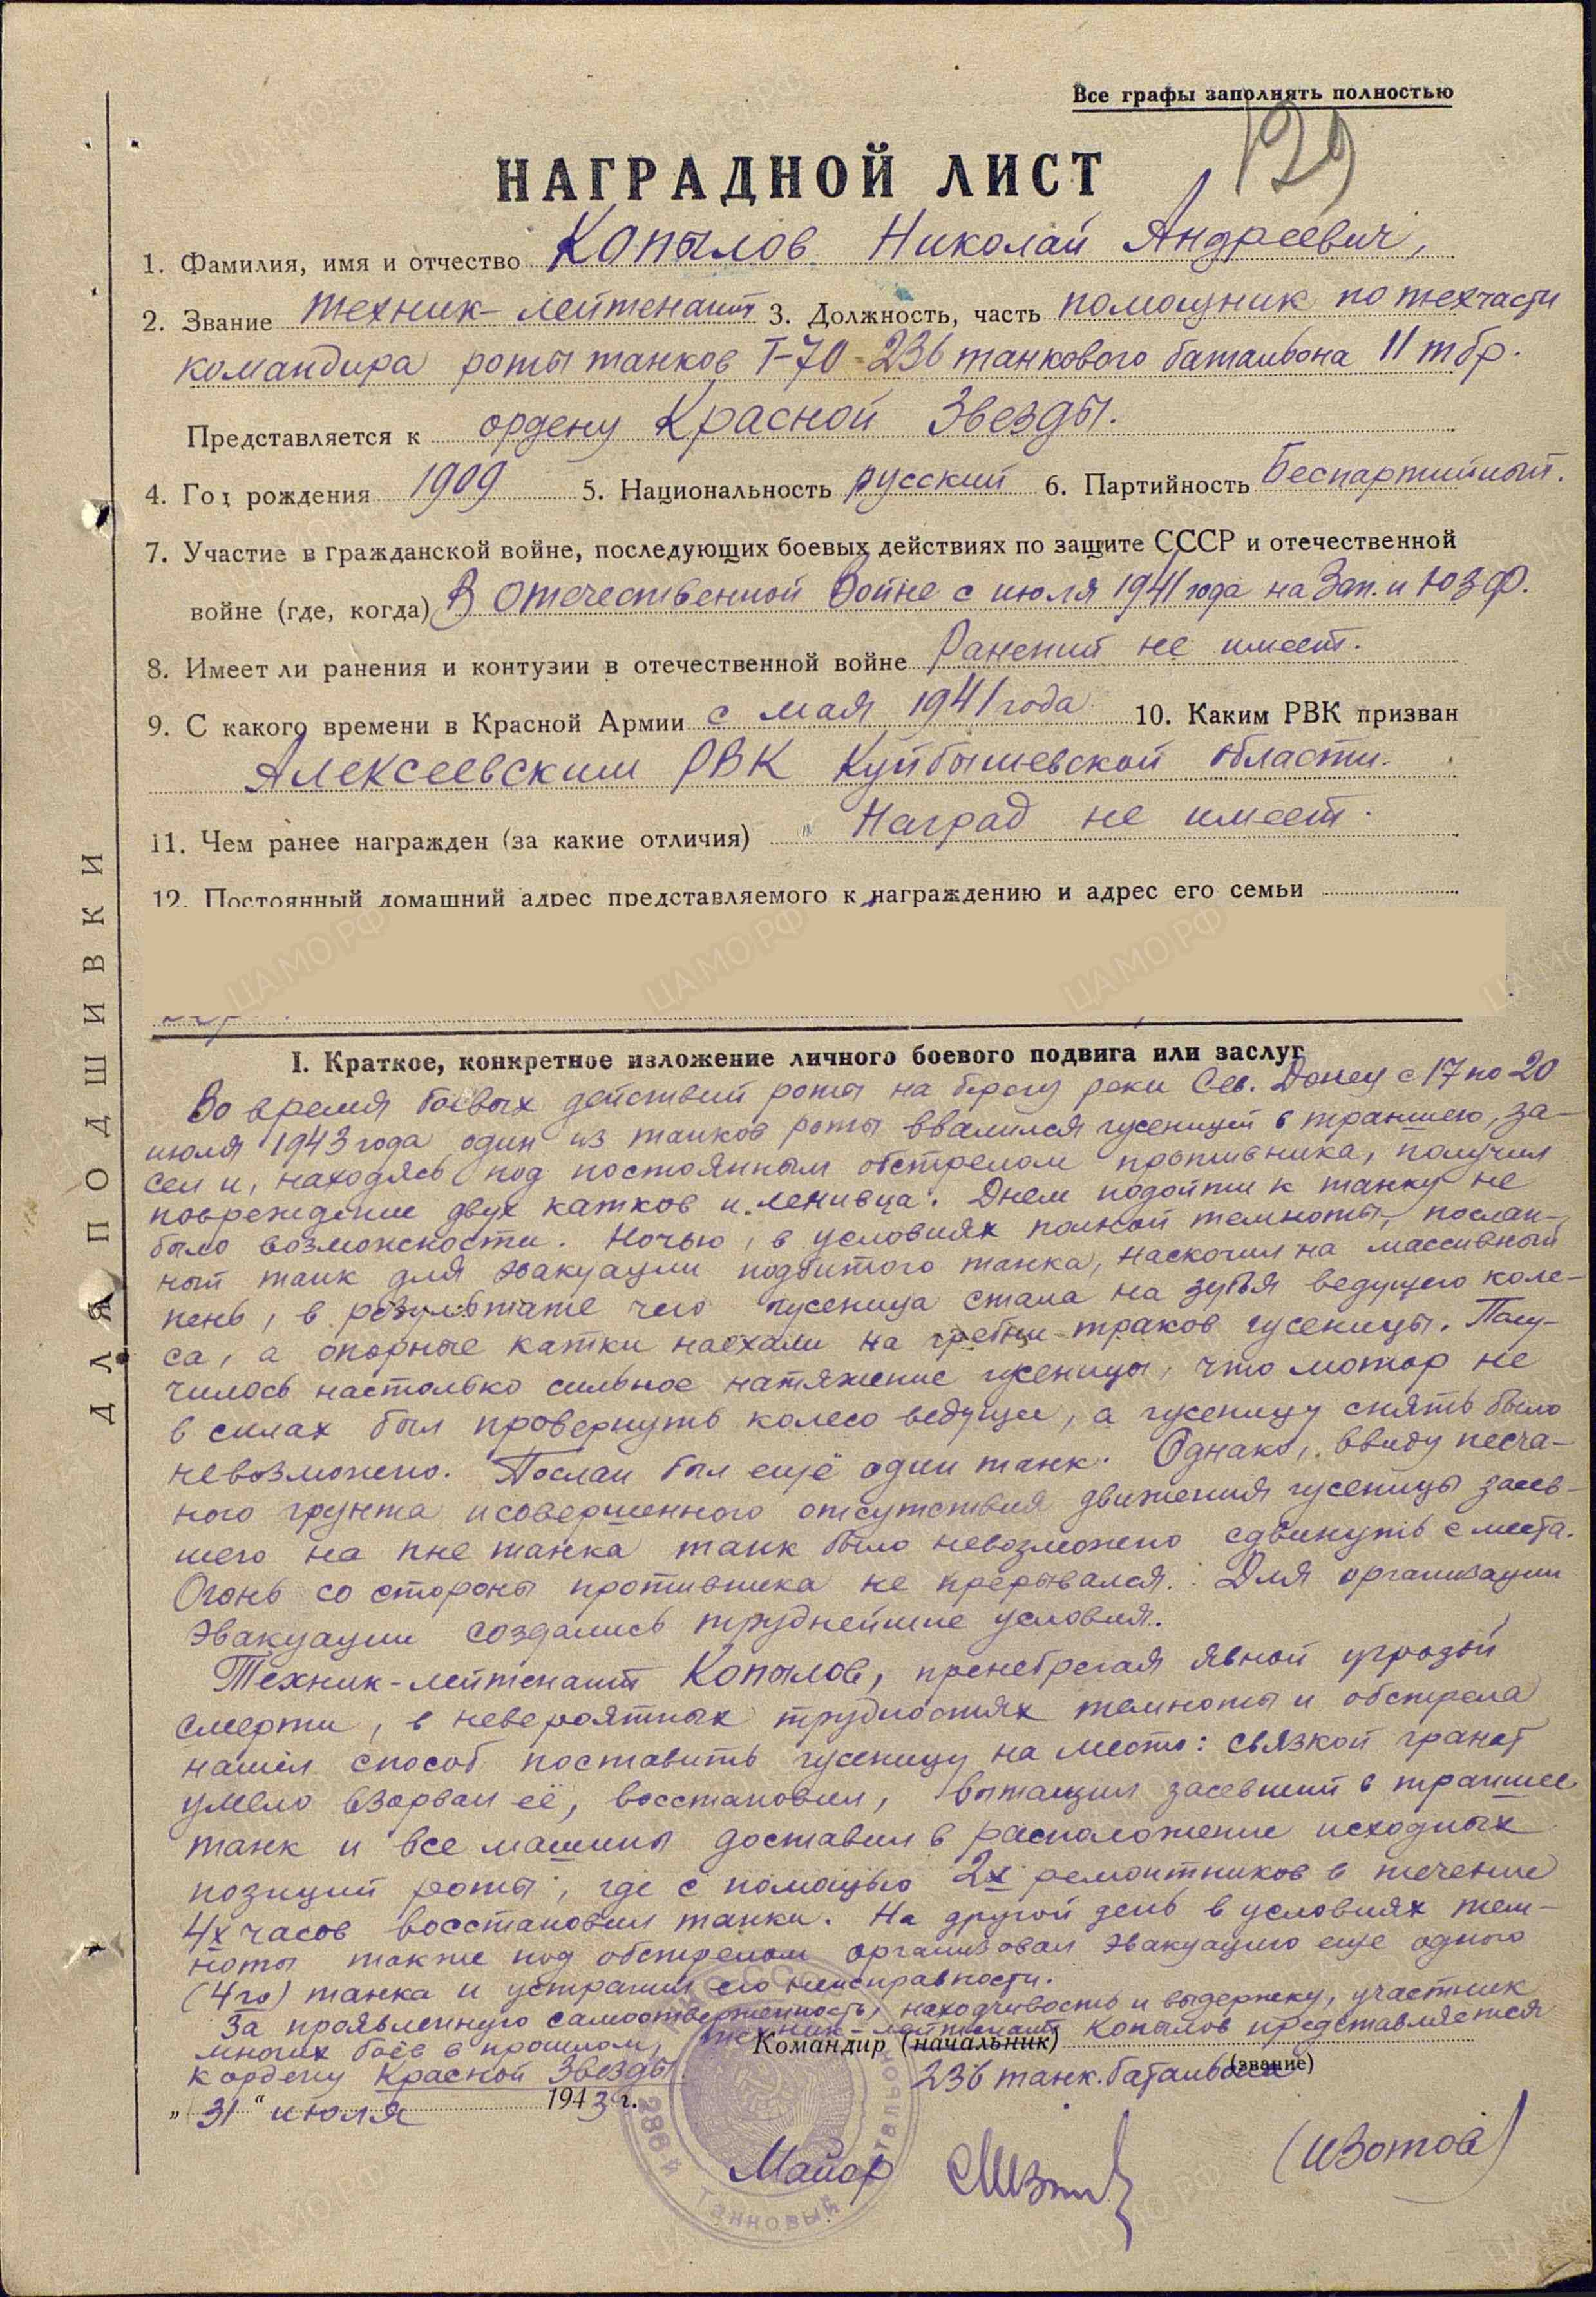 Все графы заполнять полностью
129
НАГРАДНОЙ ЛИСТ
1. Фамилия, имя и отчество Копылов Николай Андреевич,
2. Звание техник-лейтенант 3. Должность, часть помощник по техчасти
командира роты танков Т-70 236 танкового батальона 11 тбр.
Представляется к ордену Красной Звезды.
4. Год рождения 1909 5. Национальность русский 6. Партийность Беспартийный.
7. Участие в гражданской войне, последующих боевых действиях по защите СССР и отечественной
войне (где, когда) В Отечественной Войне с июля 1941 года на Зап. и ЮЗФ.
8. Имеет ли ранения и контузии в отечественной войне Ранений не имеет.
9. С какого времени в Красной Армии с мая 1941 года 10. Каким РВК призван
Алексеевским РВК Куйбышевской области.
11. Чем ранее награжден (за какие отличия) Наград не имеет.
12. Постоянный домашний адрес представляемого к награждению и адрес его семьи
I. Краткое, конкретное изложение личного боевого подвига или заслуг
Во время боевых действий роты на берегу реки Сев. Донец с 17 по 20
июля 1943 года один из танков роты ввалился гусеницей в траншею, за-
сел и, находясь под постоянным обстрелом противника, получил
повреждение двух катков и ленивца. Днем подойти к танку не
было возможности. Ночью, в условиях полной темноты, послан-
ный танк для эвакуации подбитого танка, наскочил на массивный
пень, в результате чего гусеница стала на зубья ведущего коле-
са, а опорные катки наехали на гребни траков гусеницы. Полу-
чилось настолько сильное натяжение гусеницы, что мотор не
в силах был провернуть колесо ведущее, а гусеницу снять было
невозможно. Послан был ещё один танк. Однако, ввиду песча-
ного грунта и совершенного отсутствия движения гусеницы засев-
шего на пне танка танк было невозможно сдвинуть с места.
Огонь со стороны противника не прерывался. Для организации
эвакуации создались труднейшие условия.
Техник-лейтенант Копылов, пренебрегая явной угрозой
смерти, в невероятных трудностях темноты и обстрела
нашёл способ поставить гусеницу на место: связкой гранат
умело взорвал её, восстановил, вытащил засевший в траншее
танк и все машины доставил в расположение исходных
позиций роты, где с помощью 2х ремонтников в течение
4х часов восстановил танки. На другой день в условиях тем-
ноты также под обстрелом организовал эвакуацию еще одного
(4го) танка и устранил его неисправности.
За проявленную самоотверженность, находчивость и выдержку, участник
многих боёв в прошлом, техник-лейтенант Копылов представляется
к ордену Красной Звезды.
Командир (начальник)
236 танк. батальона
(звание)
„ 31 “ июля 1943 г.
Майор (Изотов)
ДЛЯ ПОДШИВКИ
236й Танковый батальон
ЦАМО.РФ